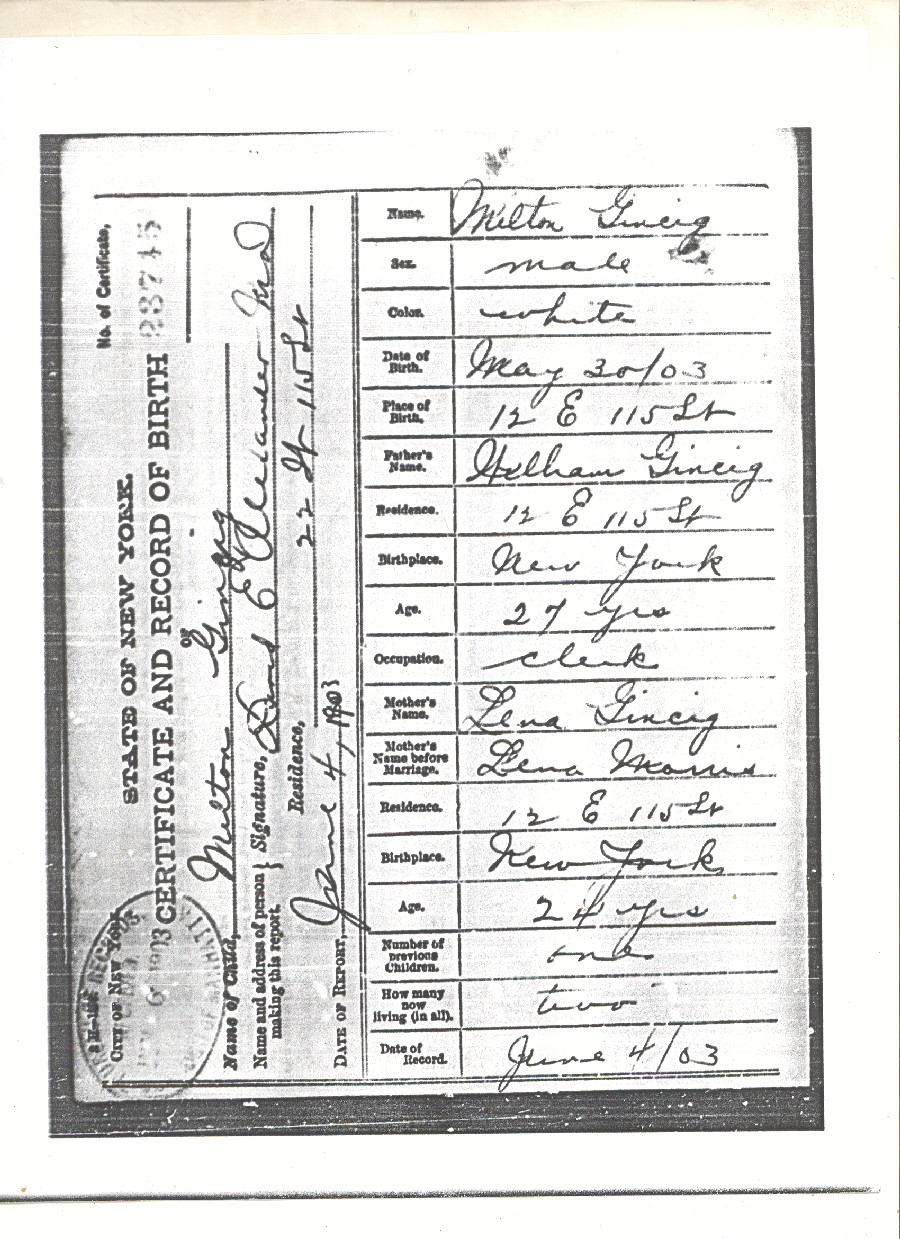 No. of Certificate,
23745
STATE OF NEW YORK.
CERTIFICATE AND RECORD OF BIRTH
OF
CITY OF NEW YORK
Name of Child, Milton
Name and address of person making this report. } Signature, E Alexander MD
Residence, 22 W 115 St
DATE OF REPORT, June 4, 1903
Name. Milton Gincig
Sex. male
Color. white
Date of Birth. May 30/03
Place of Birth. 12 E 115 St
Father's Name. Gincig
Residence. 12 E 115 St
Birthplace. New York
Age. 27 yrs
Occupation. clerk
Mother's Name. Lena Gincig
Mother's Name before Marriage. Lena Morris
Residence. 12 E 115 St
Birthplace. New York
Age. 24 yrs
Number of previous Children. one
How many now living (in all). two
Date of Record. June 4/03